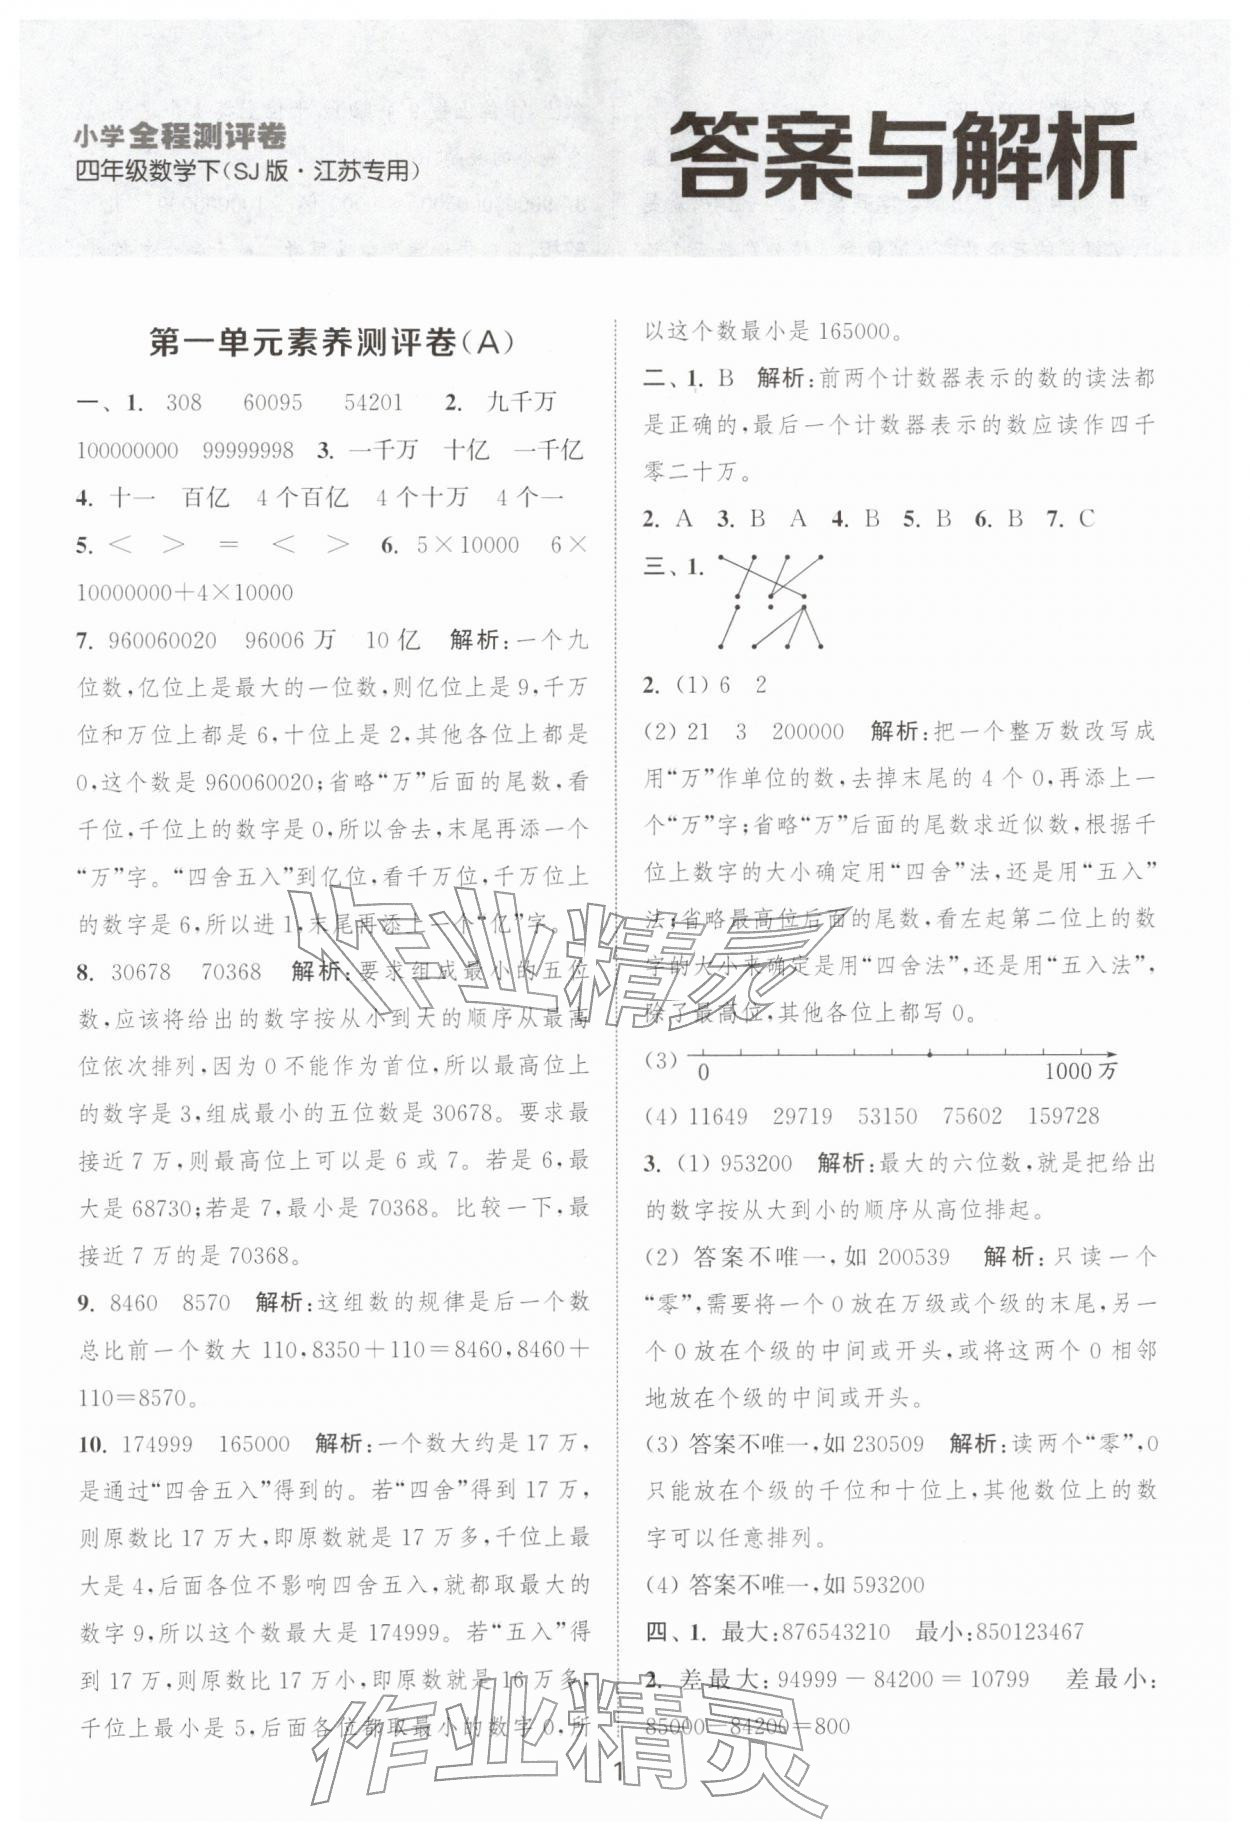 小学全程测评卷
四年级数学下(SJ版·江苏专用)
答案与解析
第一单元素养测评卷(A)
一、1. 308 60095 54201 2. 九千万
100000000 99999998 3. 一千万 十亿 一千亿
4. 十一 百亿 4个百亿 4个十万 4个一
5. < > = < > 6. 5×10000 6×
10000000+4×10000
7. 960060020 96006万 10亿 解析:一个九
位数,亿位上是最大的一位数,则亿位上是9,千万
位和万位上都是6,十位上是2,其他各位上都是
0,这个数是960060020;省略“万”后面的尾数,看
千位,千位上的数字是0,所以舍去,末尾再添一个
“万”字。“四舍五入”到亿位,看千万位,千万位上
的数字是6,所以进1,末尾再添上一个“亿”字。
8. 30678 70368 解析:要求组成最小的五位
数,应该将给出的数字按从小到大的顺序从最高
位依次排列,因为0不能作为首位,所以最高位上
的数字是3,组成最小的五位数是30678。要求最
接近7万,则最高位上可以是6或7。若是6,最
大是68730;若是7,最小是70368。比较一下,最
接近7万的是70368。
9. 8460 8570 解析:这组数的规律是后一个数
总比前一个数大110,8350+110=8460,8460+
110=8570。
10. 174999 165000 解析:一个数大约是17万,
是通过“四舍五入”得到的。若“四舍”得到17万,
则原数比17万大,即原数就是17万多,千位上最
大是4,后面各位不影响四舍五入,就都取最大的
数字9,所以这个数最大是174999。若“五入”得
到17万,则原数比17万小,即原数就是16万多,
千位上最小是5,后面各位都取最小的数字0,所
以这个数最小是165000。
二、1. B 解析:前两个计数器表示的数的读法都
是正确的,最后一个计数器表示的数应读作四千
零二十万。
2. A 3. B A 4. B 5. B 6. B 7. C
三、1.
2. (1) 6 2
(2) 21 3 200000 解析:把一个整万数改写成
用“万”作单位的数,去掉末尾的4个0,再添上一
个“万”字;省略“万”后面的尾数求近似数,根据千
位上数字的大小确定用“四舍”法,还是用“五入”
法;省略最高位后面的尾数,看左起第二位上的数
字的大小来确定是用“四舍法”,还是用“五入法”,
除了最高位,其他各位上都写0。
(3) 0 1000万
(4) 11649 29719 53150 75602 159728
3. (1) 953200 解析:最大的六位数,就是把给出
的数字按从大到小的顺序从高位排起。
(2) 答案不唯一,如200539 解析:只读一个
“零”,需要将一个0放在万级或个级的末尾,另一
个0放在个级的中间或开头,或将这两个0相邻
地放在个级的中间或开头。
(3) 答案不唯一,如230509 解析:读两个“零”,0
只能放在个级的千位和十位上,其他数位上的数
字可以任意排列。
(4) 答案不唯一,如593200
四、1. 最大:876543210 最小:850123467
2. 差最大:94999-84200=10799 差最小:
85000-84200=800
作业精灵
作业精灵
1